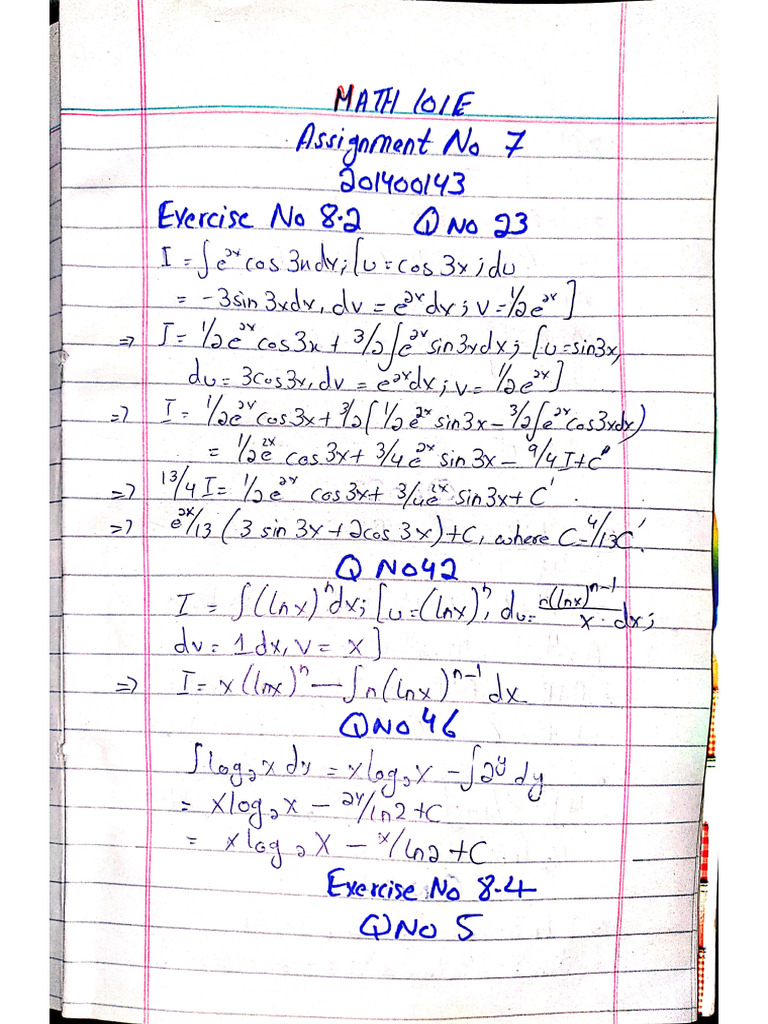 MATH 101E
Assignment No 7
201400143
Exercise No 8.2 Q No 23
I = ∫e^2x cos 3x dx; [u = cos 3x; du
= -3sin 3xdx, dv = e^2x dx; v = 1/2e^2x]
=> I = 1/2e^2x cos3x + 3/2∫e^2x sin3xdx; [u = sin3x,
du = 3cos3x, dv = e^2x dx; v = 1/2e^2x]
=> I = 1/2e^2x cos3x + 3/2(1/2e^2x sin3x - 3/2∫e^2x cos3xdx)
= 1/2e^2x cos3x + 3/4e^2x sin3x - 9/4 I + C'
=> 13/4 I = 1/2e^2x cos3x + 3/4e^2x sin3x + C'.
=> e^2x/13 (3 sin 3x + 2cos 3x) + C, where C = 4/13C'.
Q No 42
I = ∫(lnx)^n dx; [u = (lnx)^n, du = n(lnx)^n-1/x · dx;
dv = 1dx, v = x]
=> I = x(lnx)^n - ∫n(lnx)^n-1 dx
Q No 46
∫log₂x dx = xlog₂x - ∫2^y dy
= xlog₂x - 2^y/ln2 + C
= xlog₂x - x/ln2 + C
Exercise No 8.4
Q No 5